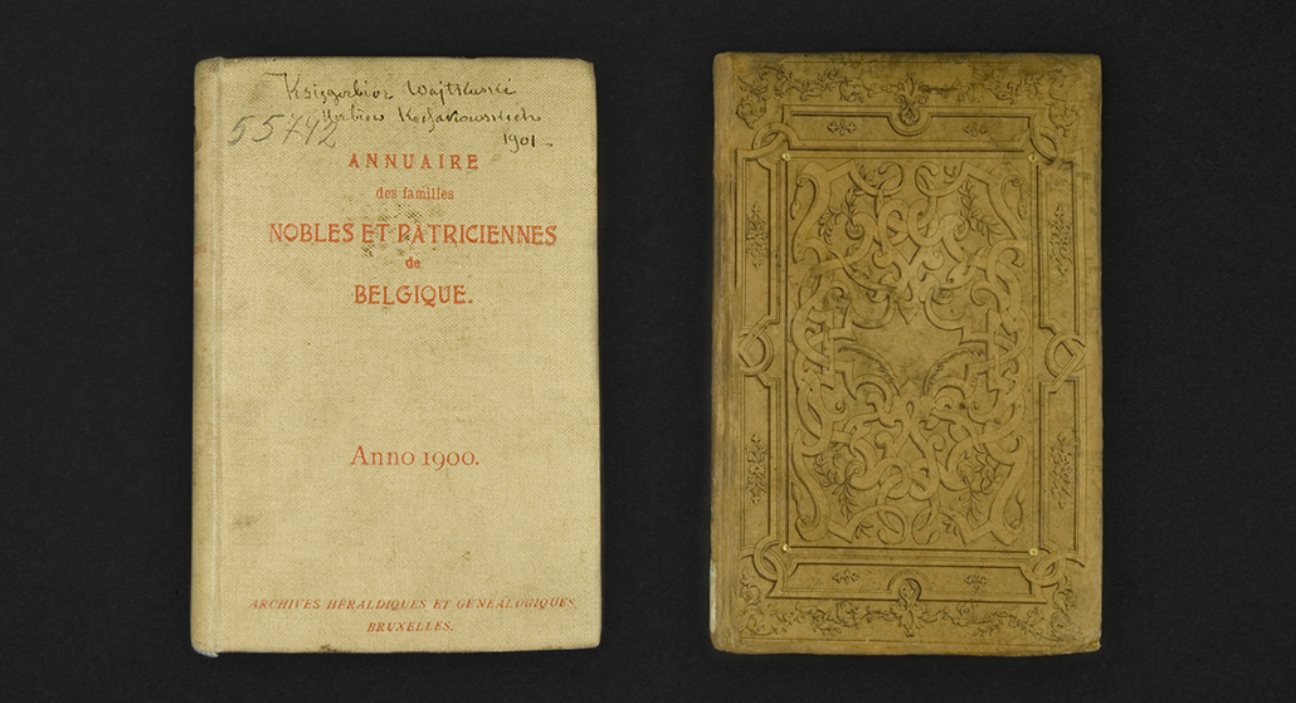 Księgozbiór Wojtkuski
Kossakowskich
55742
1901 -
ANNUAIRE
des familles
NOBLES ET PATRICIENNES
de
BELGIQUE.
Anno 1900.
ARCHIVES HÉRALDIQUES ET GÉNÉALOGIQUES
BRUXELLES.